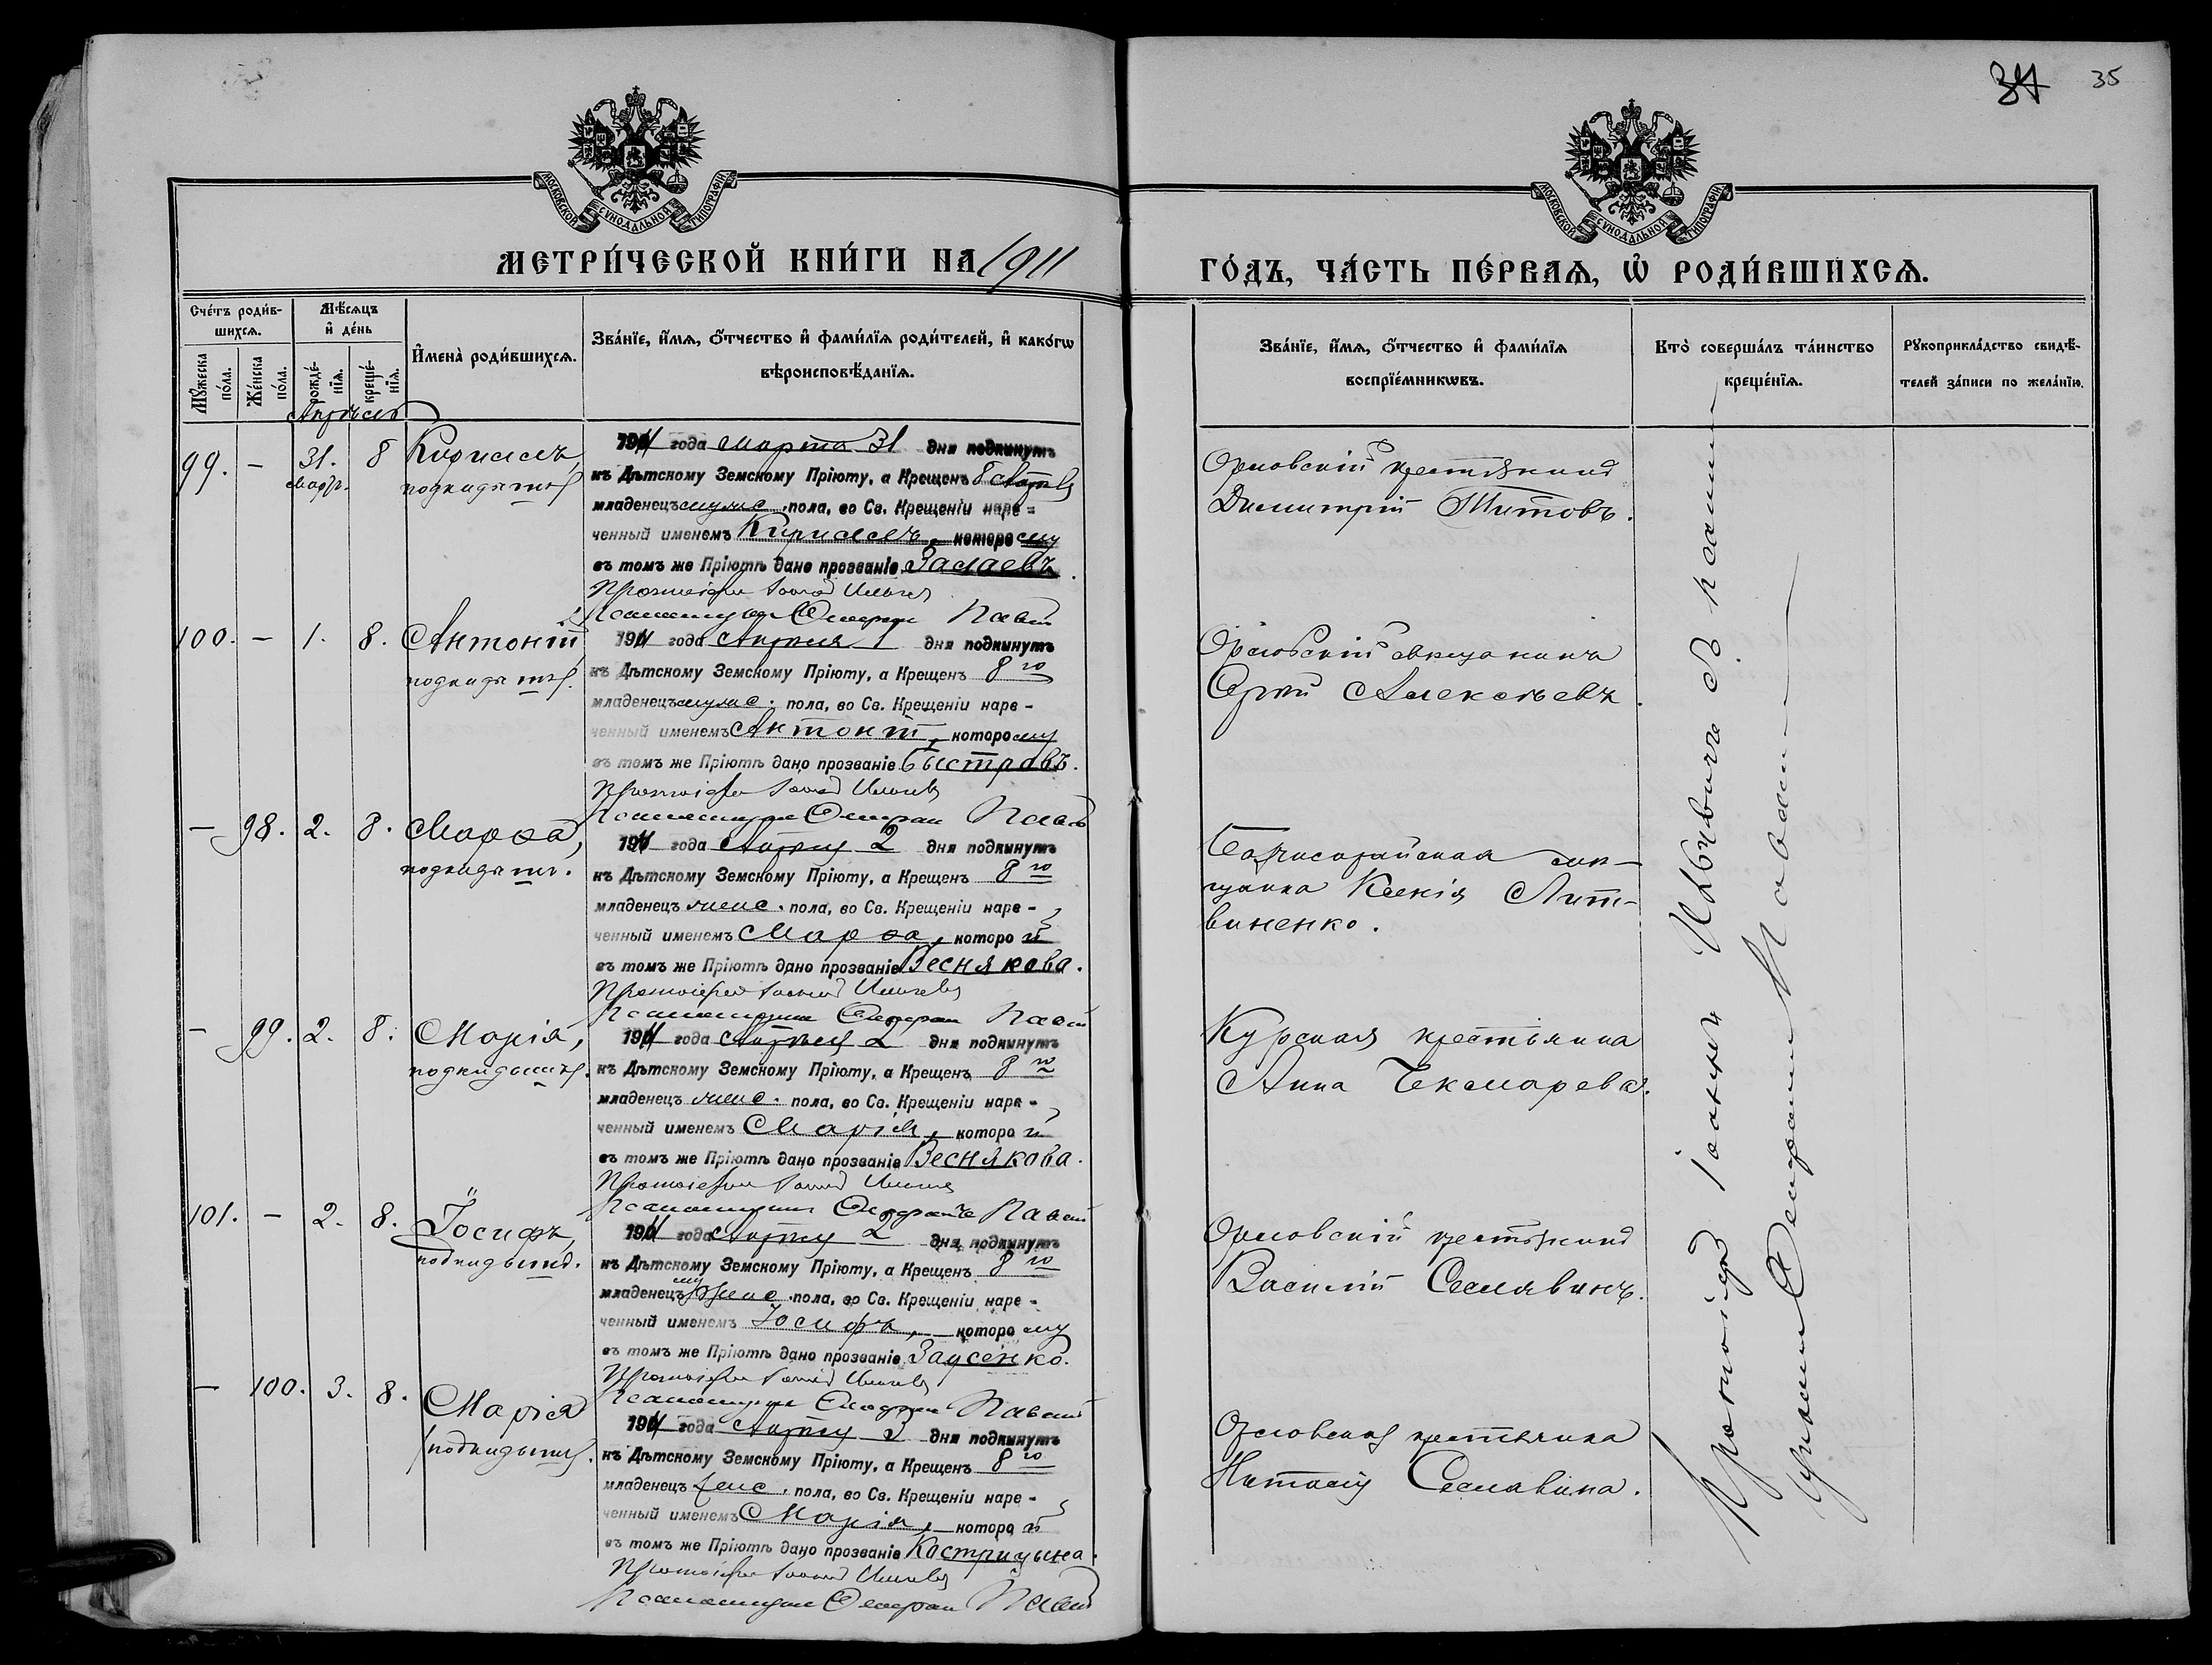 34 35
МОСКОВСКОЙ СѴНОДАЛЬНОЙ ТИПОГРАФІИ
МОСКОВСКОЙ СѴНОДАЛЬНОЙ ТИПОГРАФІИ
МЕТРИ́ЧЕСКОЙ КНИ́ГИ НА 1911
ГО́ДЪ, ЧА́СТЬ ПЕ́РВАѦ, Ѡ҆ РОДИ́ВШИХСѦ.
Сче́тъ роди́в-
шихсѧ.
Мꙋ́жеска по́ла.
Же́нска по́ла.
Мѣ́сѧцъ
и҆ де́нь
рожде́-
нїѧ.
креще́-
нїѧ.
И҆мена̀ роди́вшихсѧ.
Зва́нїе, и҆́мѧ, ѻ҆́тчество и҆ фами́лїѧ роди́телей, и҆ како́гѡ
вѣроисповѣ́данїѧ.
Зва́нїе, и҆́мѧ, ѻ҆́тчество и҆ фами́лїѧ
воспрїе́мникѡвъ.
Кто̀ соверша́лъ та́инство
креще́нїѧ.
Рꙋкоприкла́дство свидѣ́-
телей за́писи по жела́нїю.
Апрѣль
99. – 31. Мар. 8 Кириллъ,
подкидышъ
1911 года Марта 31 дня подкинутъ
къ Дѣтскому Земскому Пріюту, а Крещенъ 8 Апрѣля
младенецъ муже. пола, во Св. Крещеніи наре-
ченный именемъ Кириллъ, которому
въ томъ же Пріютѣ дано прозваніе
Протоіерей Іоаннъ
Псаломщикъ
Орловскій крестьянинъ
Димитрій Титовъ.
100. – 1. 8. Антоній
подкидышъ.
1911 года Апрѣля 1 дня подкинутъ
къ Дѣтскому Земскому Пріюту, а Крещенъ 8го
младенецъ муже. пола, во Св. Крещеніи наре-
ченный именемъ Антоній, которому
въ томъ же Пріютѣ дано прозваніе Быстровъ.
Протоіерей Іоаннъ
Псаломщикъ
Орловскій мѣщанинъ
Сергѣй Алексѣевъ.
– 98. 2. 8. Марѳа,
подкидыш.
1911 года Апрѣля 2 дня подкинутъ
къ Дѣтскому Земскому Пріюту, а Крещенъ 8го
младенецъ женс. пола, во Св. Крещеніи наре-
ченный именемъ Марѳа, которой
въ томъ же Пріютѣ дано прозваніе Веснякова.
Протоіерей Іоаннъ
Псаломщикъ
мѣ-
щанка Ксенія Лит-
виненко.
– 99. 2. 8. Марія,
подкидышъ.
1911 года Апрѣля 2 дня подкинутъ
къ Дѣтскому Земскому Пріюту, а Крещенъ 8го
младенецъ женс. пола, во Св. Крещеніи наре-
ченный именемъ Марія, которой
въ томъ же Пріютѣ дано прозваніе Веснякова.
Протоіерей Іоаннъ
Псаломщикъ
Курская крестьянка
Анна Чекмарева.
101. – 2. 8. Іосифъ,
подкидышъ.
1911 года Апрѣля 2 дня подкинутъ
къ Дѣтскому Земскому Пріюту, а Крещенъ 8го
младенецъ пола, во Св. Крещеніи наре-
ченный именемъ Іосифъ, которому
въ томъ же Пріютѣ дано прозваніе Заусенко.
Протоіерей Іоаннъ
Псаломщикъ
Орловскій крестьянинъ
Василій Селявинъ.
– 100. 3. 8. Марія
подкидышъ.
1911 года Апрѣля 3 дня подкинутъ
къ Дѣтскому Земскому Пріюту, а Крещенъ 8го
младенецъ женс. пола, во Св. Крещеніи наре-
ченный именемъ Марія, которой
въ томъ же Пріютѣ дано прозваніе Кострицына.
Протоіерей Іоаннъ
Псаломщикъ
Орловская крестьянка
Наталія Селявина.
Протоіерей Іоаннъ съ псалом-